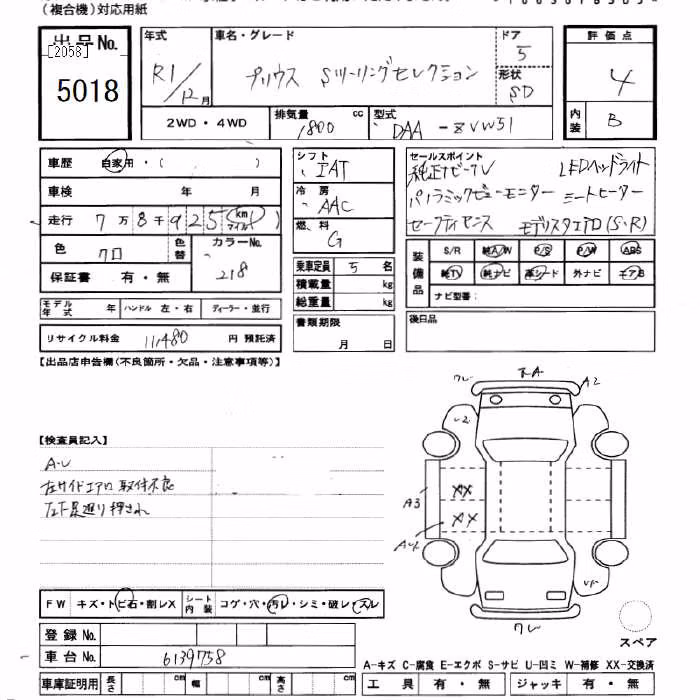 （複合機）対応用紙
出品No.
[2058]
5018
年式
R1/12月
車名・グレード
プリウス Sツーリングセレクション
ドア
5
形状
SD
評価点
4
内装
B
2WD・4WD
排気量
1800 cc
型式
DAA-ZVW51
車歴
自家用・（ ）
車検 年 月
走行 7万8千925（km マイル）
色
クロ
色替
カラーNo.
218
保証書 有・無
モデル年式 年
ハンドル 左・右
ディーラー・並行
リサイクル料金 11,480 円 預託済
シフト
IAT
冷房
AAC
燃料
G
乗車定員 5 名
積載量 kg
総重量 kg
書類期限
月 日
セールスポイント
純正ナビ・TV LEDヘッドライト
パノラミックビューモニター シートヒーター
セーフティセンス モデリスタエアロ(S・R)
装備品
S/R 純A/W P/S P/W ABS
純TV 純ナビ 革シート 外ナビ エアB
ナビ型番：
後日品
【出品店申告欄（不良箇所・欠品・注意事項等）】
【検査員記入】
A・U
左サイドエアロ取付不良
左下見廻り押され
ワレ
A2
U2
A3
XX
XX
ワレ
スペア
FW キズ・トビ石・割レX
シート内装 コゲ・穴・汚レ・シミ・破レ・スレ
登録No.
車台No. 6139758
車庫証明用 長さ cm 幅 cm 高さ cm
A-キズ C-腐食 E-エクボ S-サビ U-凹ミ W-補修 XX-交換済
工具 有・無 ジャッキ 有・無